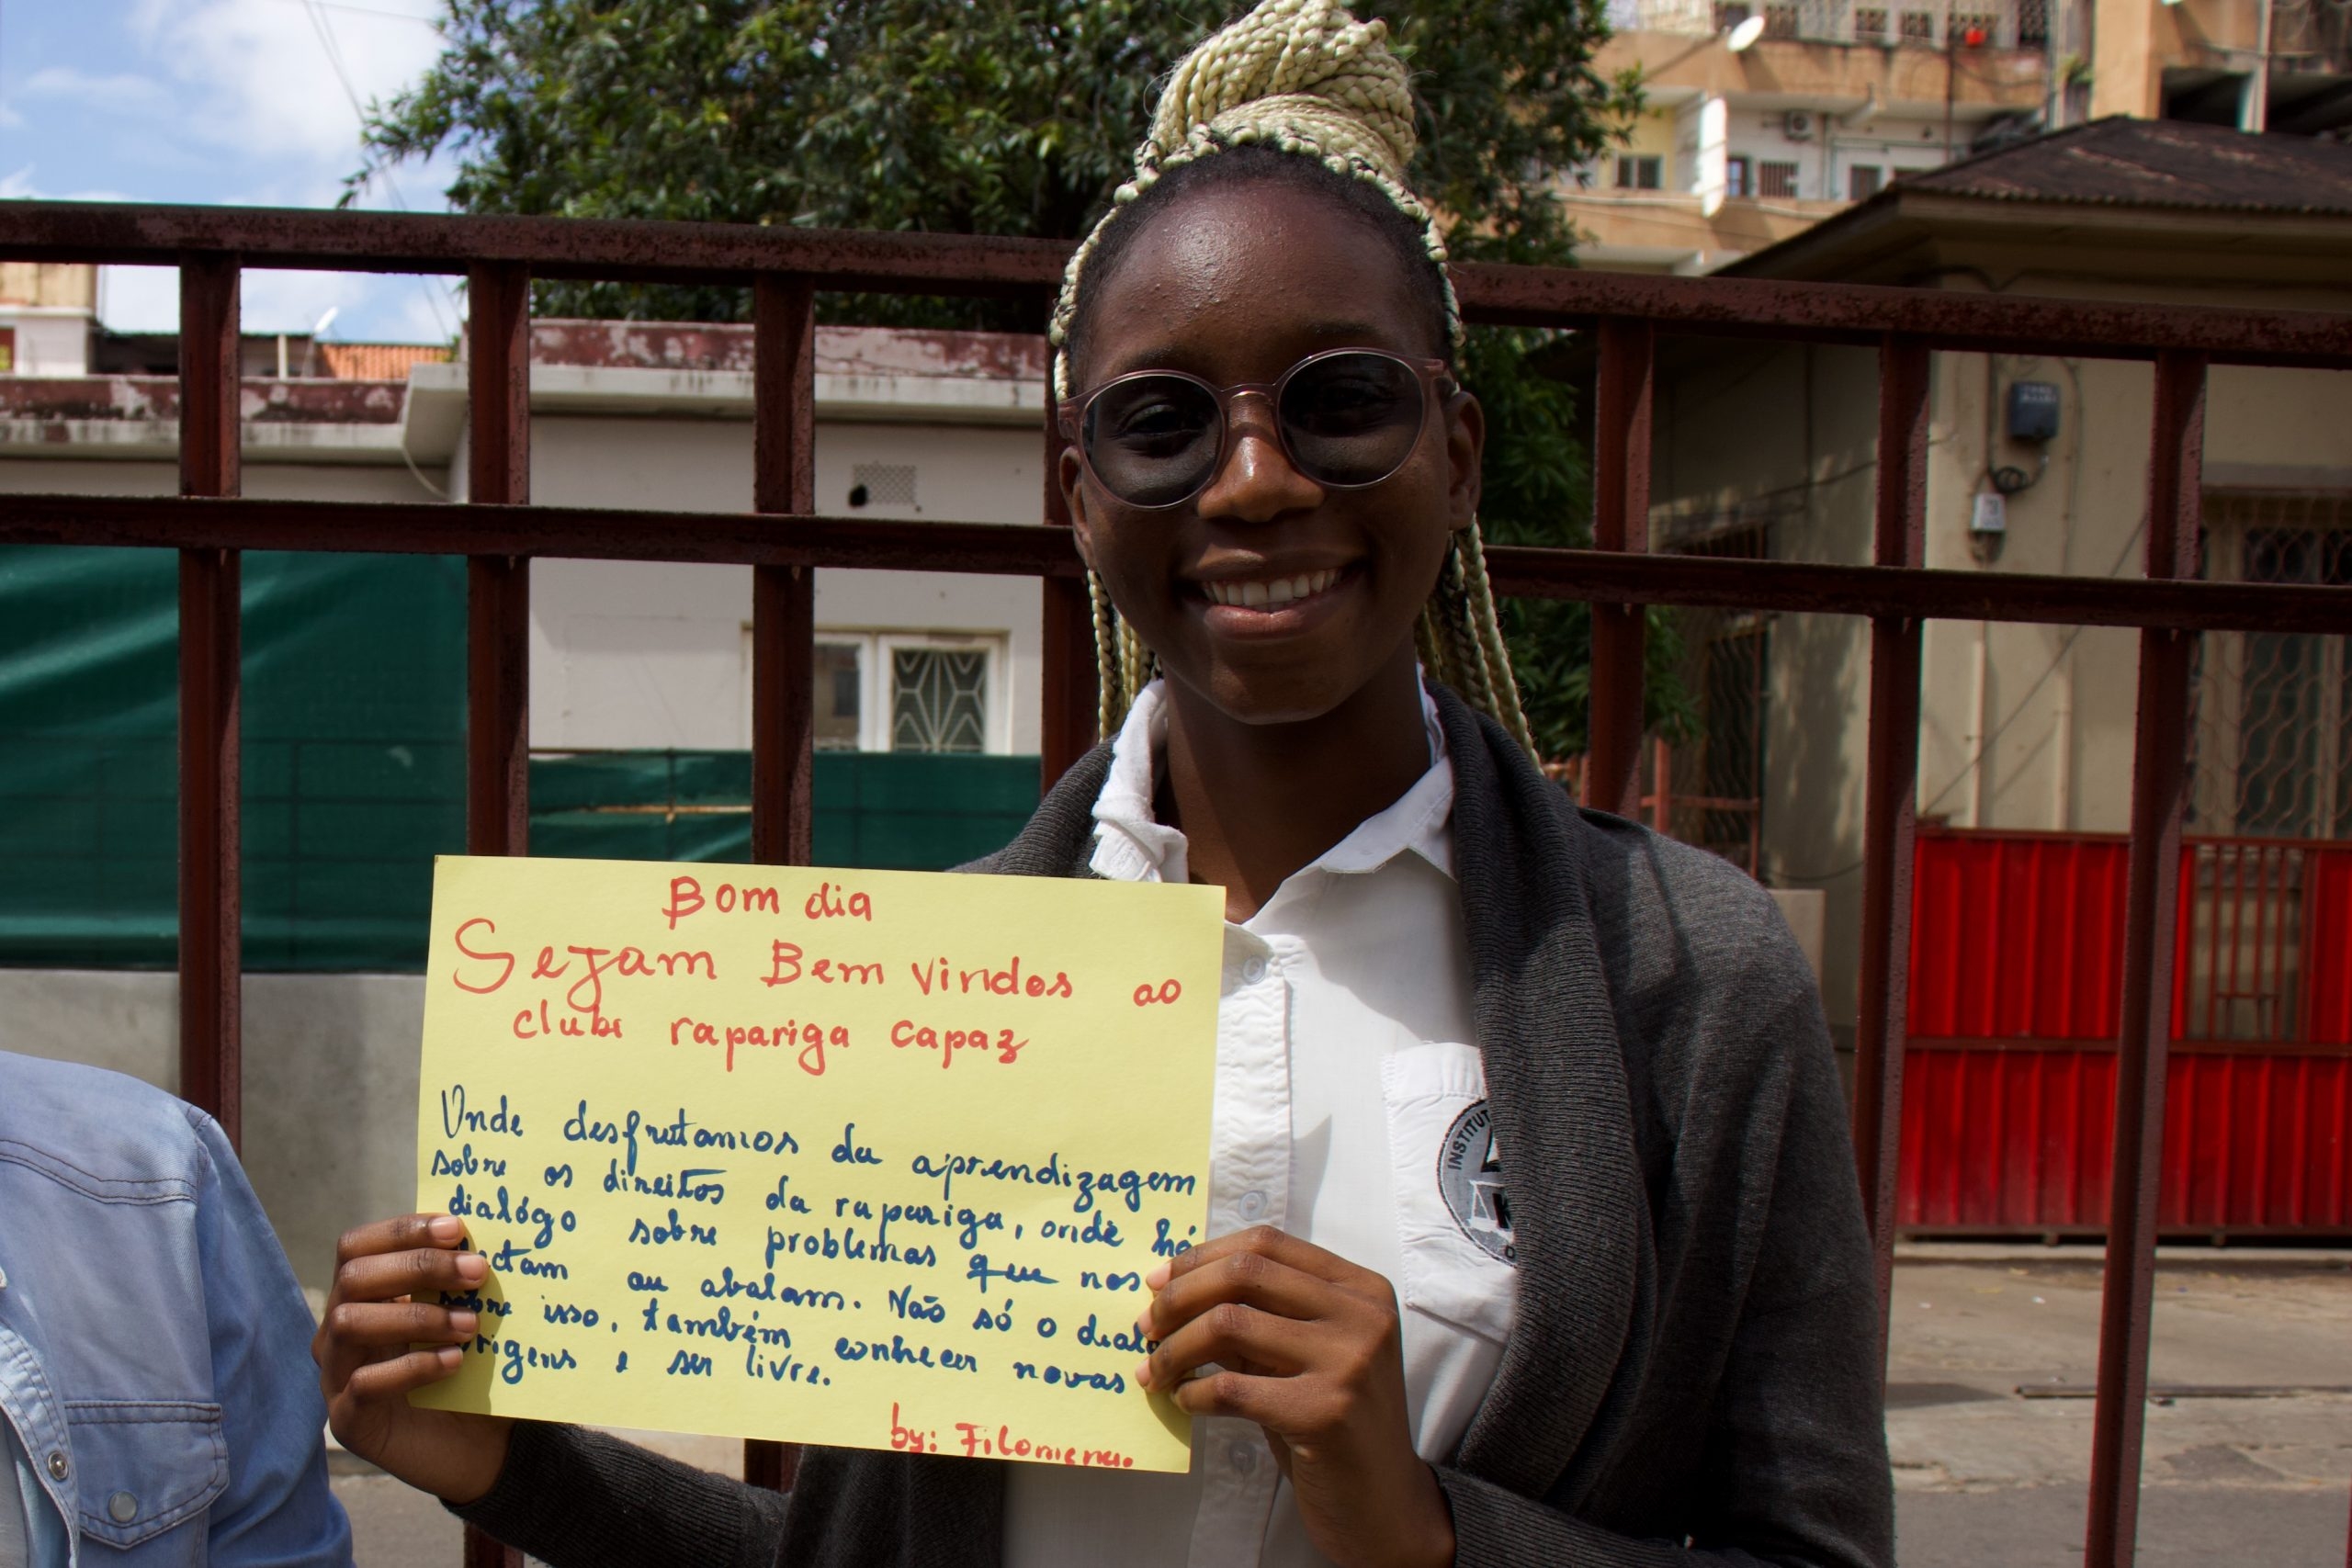 Bom dia
Sejam Bem vindos ao
clube rapariga capaz
Onde desfrutamos da aprendizagem
sobre os direitos da rapariga, onde há
dialógo sobre problemas que nos
ctam ou abalam. Não só o dialo
sobre isso, também conhecer novas
origens e ser livre.
by: Filomena.
INSTITUT